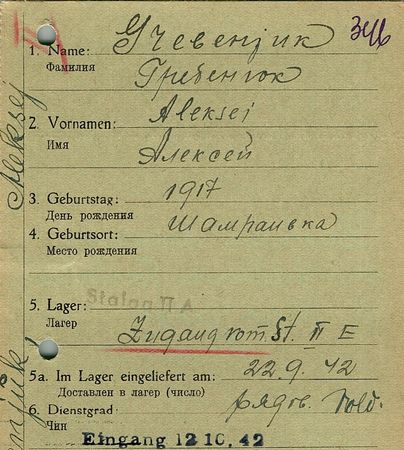 346
1. Name:
Фамилия
Гребенюк
2. Vornamen: Aleksei
Имя
Алексей
3. Geburtstag: 1917
День рождения
4. Geburtsort: Шамраивка
Место рождения
5. Lager: Stalag II A
Лагер
Zugang vom St. II E
5a. Im Lager eingeliefert am: 22.9.42
Доставлен в лагер (число)
6. Dienstgrad: рядов. Sold.
Чин
Eingang 12 10. 42
Aleksej